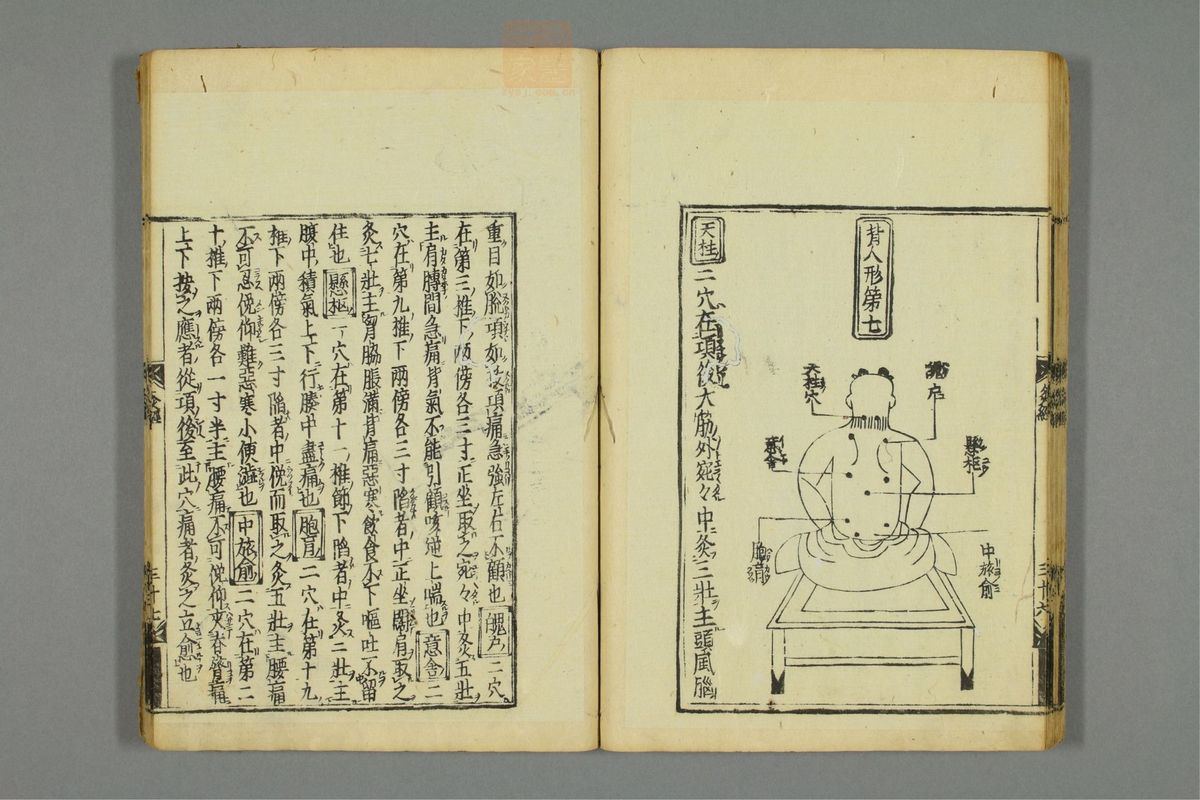 背人形第七
魄戶
天柱穴
懸枢
意舍
胞肓
中膂俞
天柱二穴在項後大筋外宛々中灸三壮主頭風腦
重目如脫項如拔項痛急強左右不顧也魄戶二穴
在第三椎下兩傍各三寸正坐取之宛々中灸五壮
主肩膊間急痛背氣不能引顧咳逆上喘也意舍二
穴在第九椎下兩傍各三寸陷者中正坐闊肩取之
灸七壮主胃脇脹滿背痛惡寒飲食不下嘔吐不留
住也懸枢一穴在第十一椎節下陷者中灸二壮主
腹中積氣上下行腠中盡痛也胞肓二穴在第十九
椎下兩傍各三寸陷者中俛而取之灸五壮主腰痛
不可忍俛仰難惡寒小便澁也中膂俞二穴在第二
十椎下兩傍各一寸半主腰痛不可俛仰夾脊膂痛
上下按之應者從項後至此穴痛者灸之立愈也
三十六
三十七